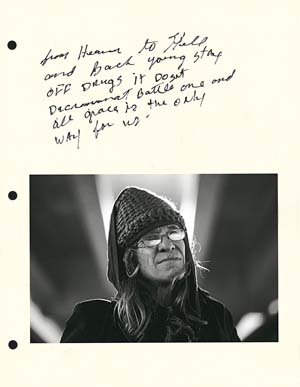 from Heaven to Hell
and Back young stay
OFF DRUGS it Doset
Decrement Battle one and
all grace is the only
way for us.